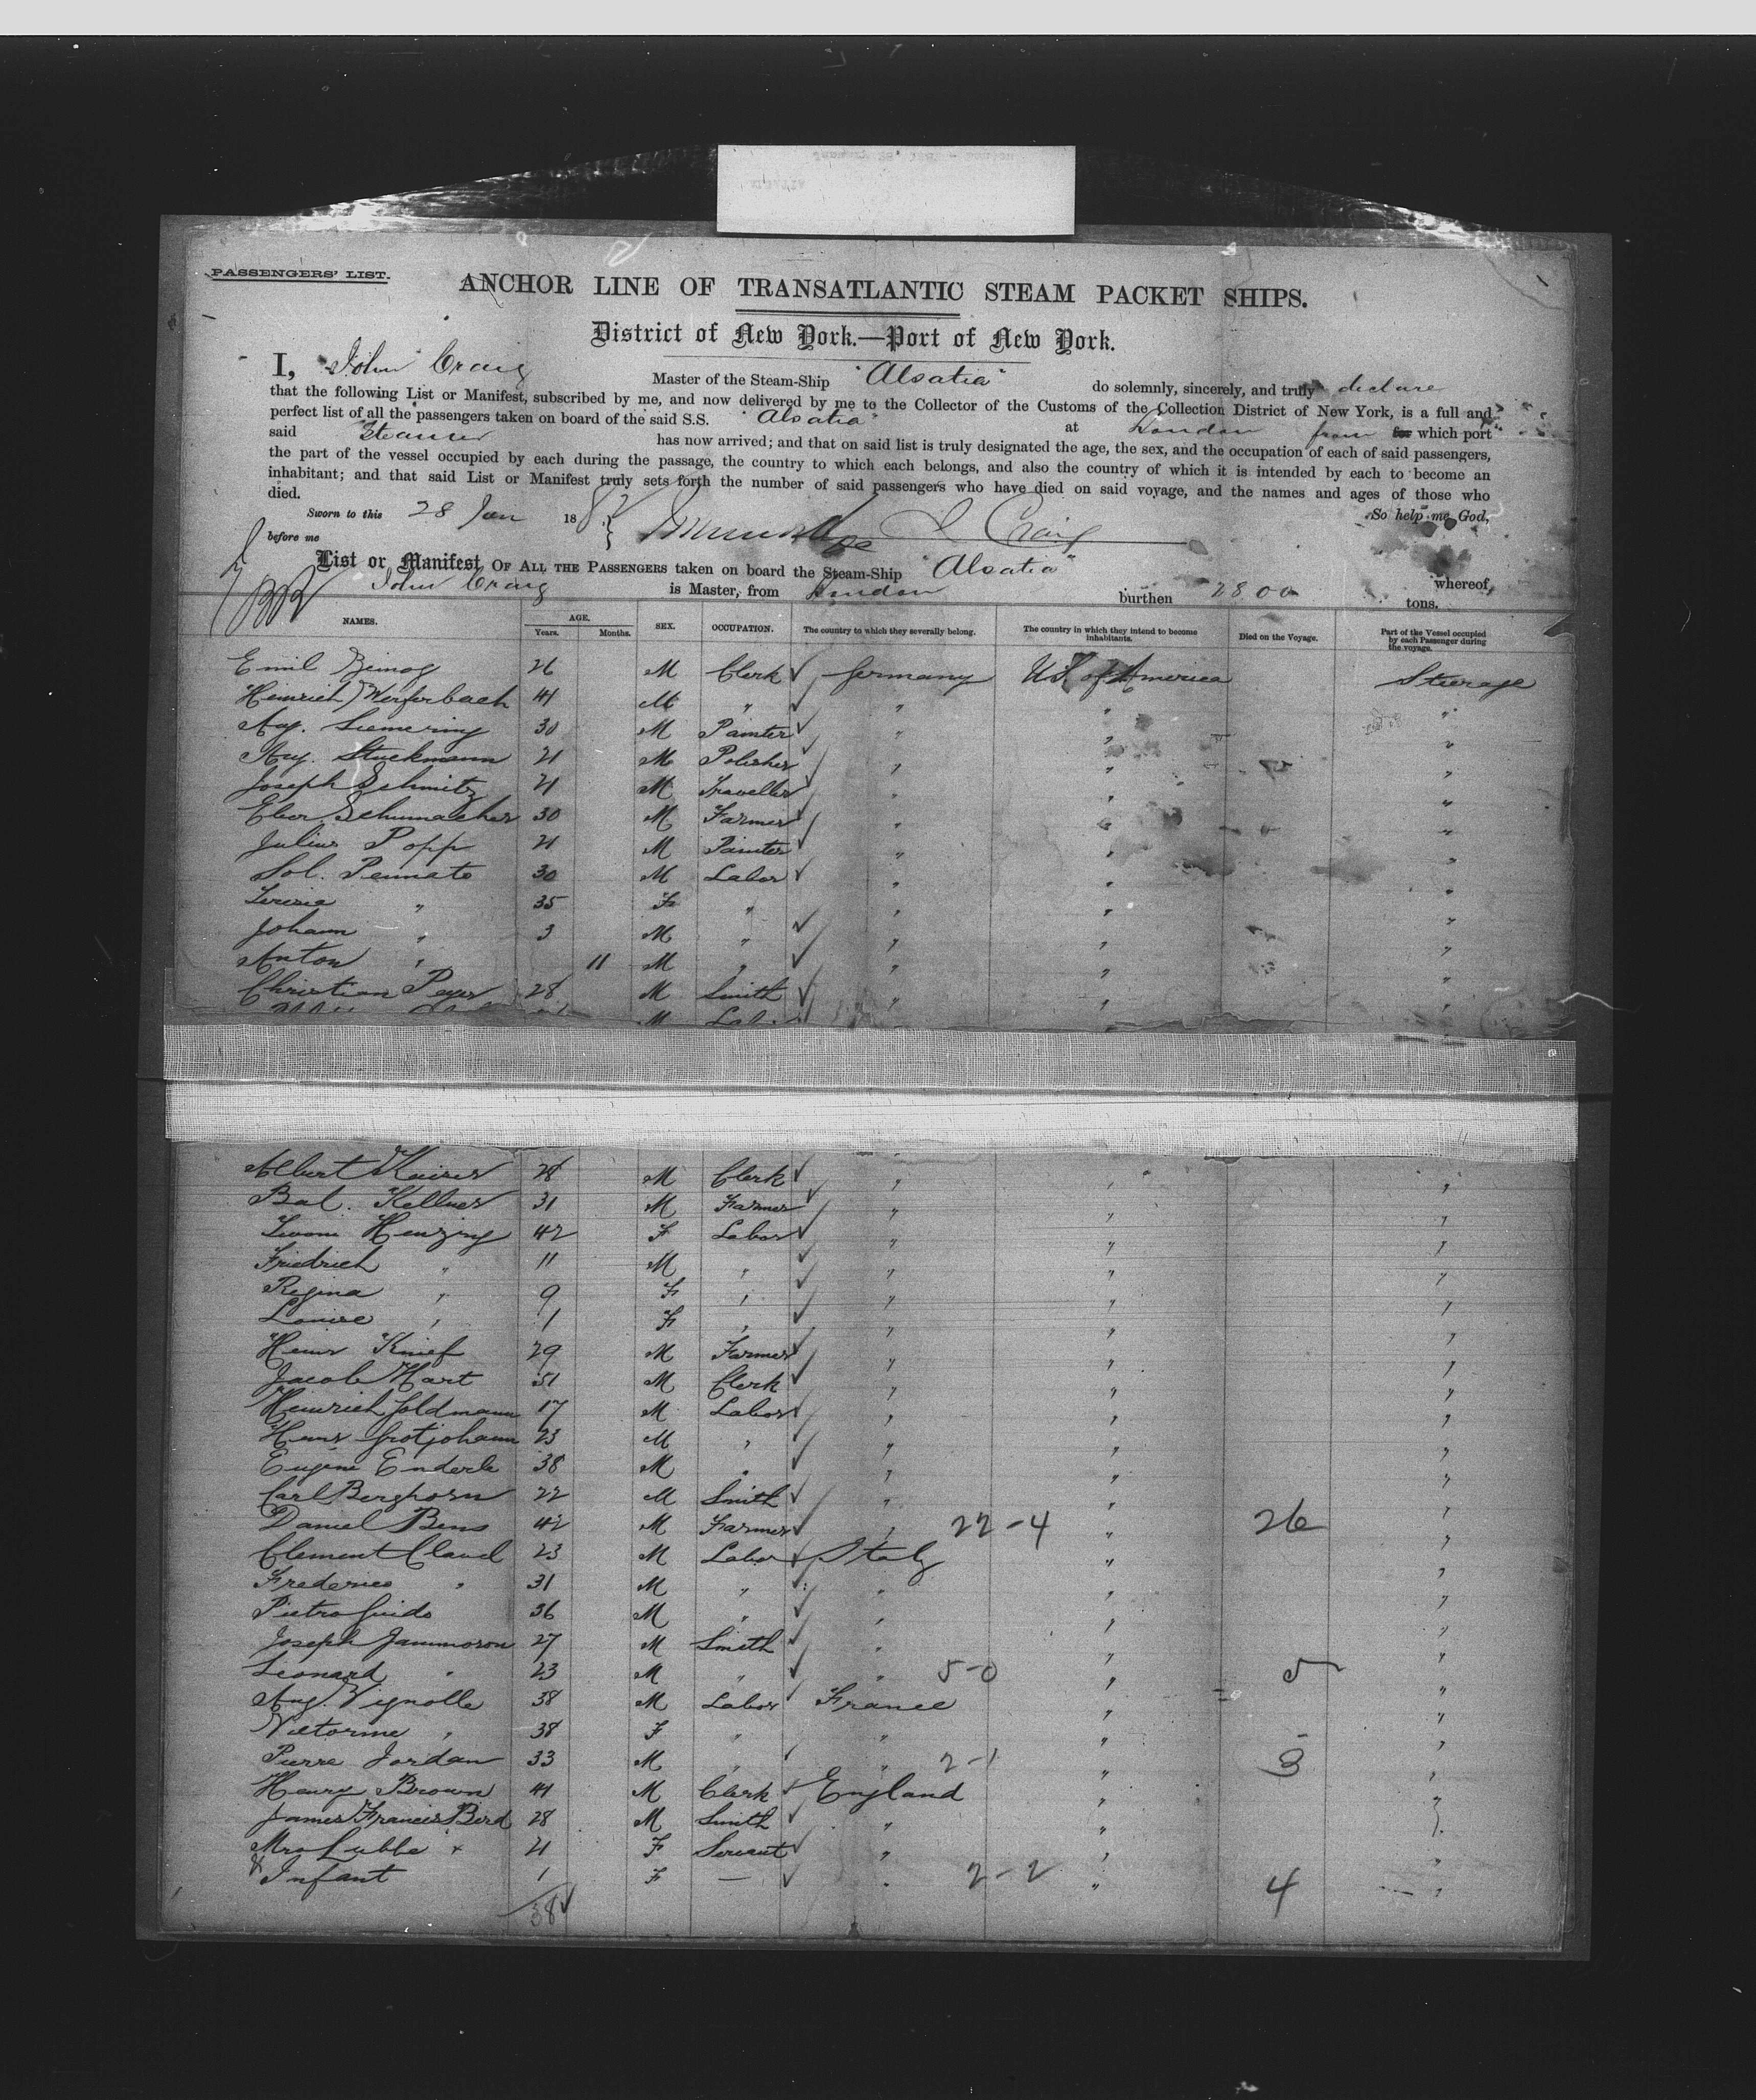 PASSENGERS' LIST.
ANCHOR LINE OF TRANSATLANTIC STEAM PACKET SHIPS.
District of New York.—Port of New York.
I, John Craig Master of the Steam-Ship "Alsatia" do solemnly, sincerely, and truly declare
that the following List or Manifest, subscribed by me, and now delivered by me to the Collector of the Customs of the Collection District of New York, is a full and
perfect list of all the passengers taken on board of the said S.S. "Alsatia" at London from for which port
said Steamer has now arrived; and that on said list is truly designated the age, the sex, and the occupation of each of said passengers,
the part of the vessel occupied by each during the passage, the country to which each belongs, and also the country of which it is intended by each to become an
inhabitant; and that said List or Manifest truly sets forth the number of said passengers who have died on said voyage, and the names and ages of those who
died. So help me God,
Sworn to this 28 Jan 1882 J Craig
before me
List or Manifest OF ALL THE PASSENGERS taken on board the Steam-Ship "Alsatia" whereof,
John Craig is Master, from London burthen 2800 tons.
NAMES. AGE. Years. Months. SEX. OCCUPATION. The country to which they severally belong. The country in which they intend to become inhabitants. Died on the Voyage. Part of the Vessel occupied by each Passenger during the voyage.
Emil 26 M Clerk Germany U.S. of America Steerage
Heinrich 41 M " " " "
Aug. 30 M Painter " " "
Aug. Stuckmann 21 M Polisher " " "
Joseph Schmitz 21 M Traveller " " "
Eber Schumacher 30 M Farmer " " "
Julius Popp 21 M Painter " " "
Sol. Pennato 30 M Labor " " "
" 35 F " " " "
Johann " 3 M " " " "
Anton " 11 M " " " "
Christian 28 M Smith " " "
M Labor
Albert Kaiser 28 M Clerk " " "
Bal. Kellner 31 M Farmer " " "
42 F Labor " " "
Friedrich " 11 M " " " "
Regina " 9 F " " " "
Louise " 1 F " " " "
Heinr Knief 29 M Farmer " " "
Jacob Hart 51 M Clerk " " "
Heinrich Goldmann 17 M Labor " " "
Grotjohann 23 M " " " "
Eugene Enderle 38 M " " " "
Carl Berghorn 22 M Smith " " "
Daniel Bens 42 M Farmer " 22-4 " 26 "
Clement Claud 23 M Labor Italy " "
Frederico " 31 M " " " "
Pietro Guido 36 M " " " "
Joseph Jammoron 27 M Smith " " "
Leonard " 23 M " " 5-0 " 5 "
Aug. Vignolle 38 M Labor France " "
" 38 F " " " "
Pierre Jordan 33 M " " 2-1 " 3 "
Henry Brown 41 M Clerk England " "
James Francis Bird 28 M Smith " " "
Mrs Lubbe 21 F Servant " " "
& Infant 1 F — " 2-2 " 4 "
38